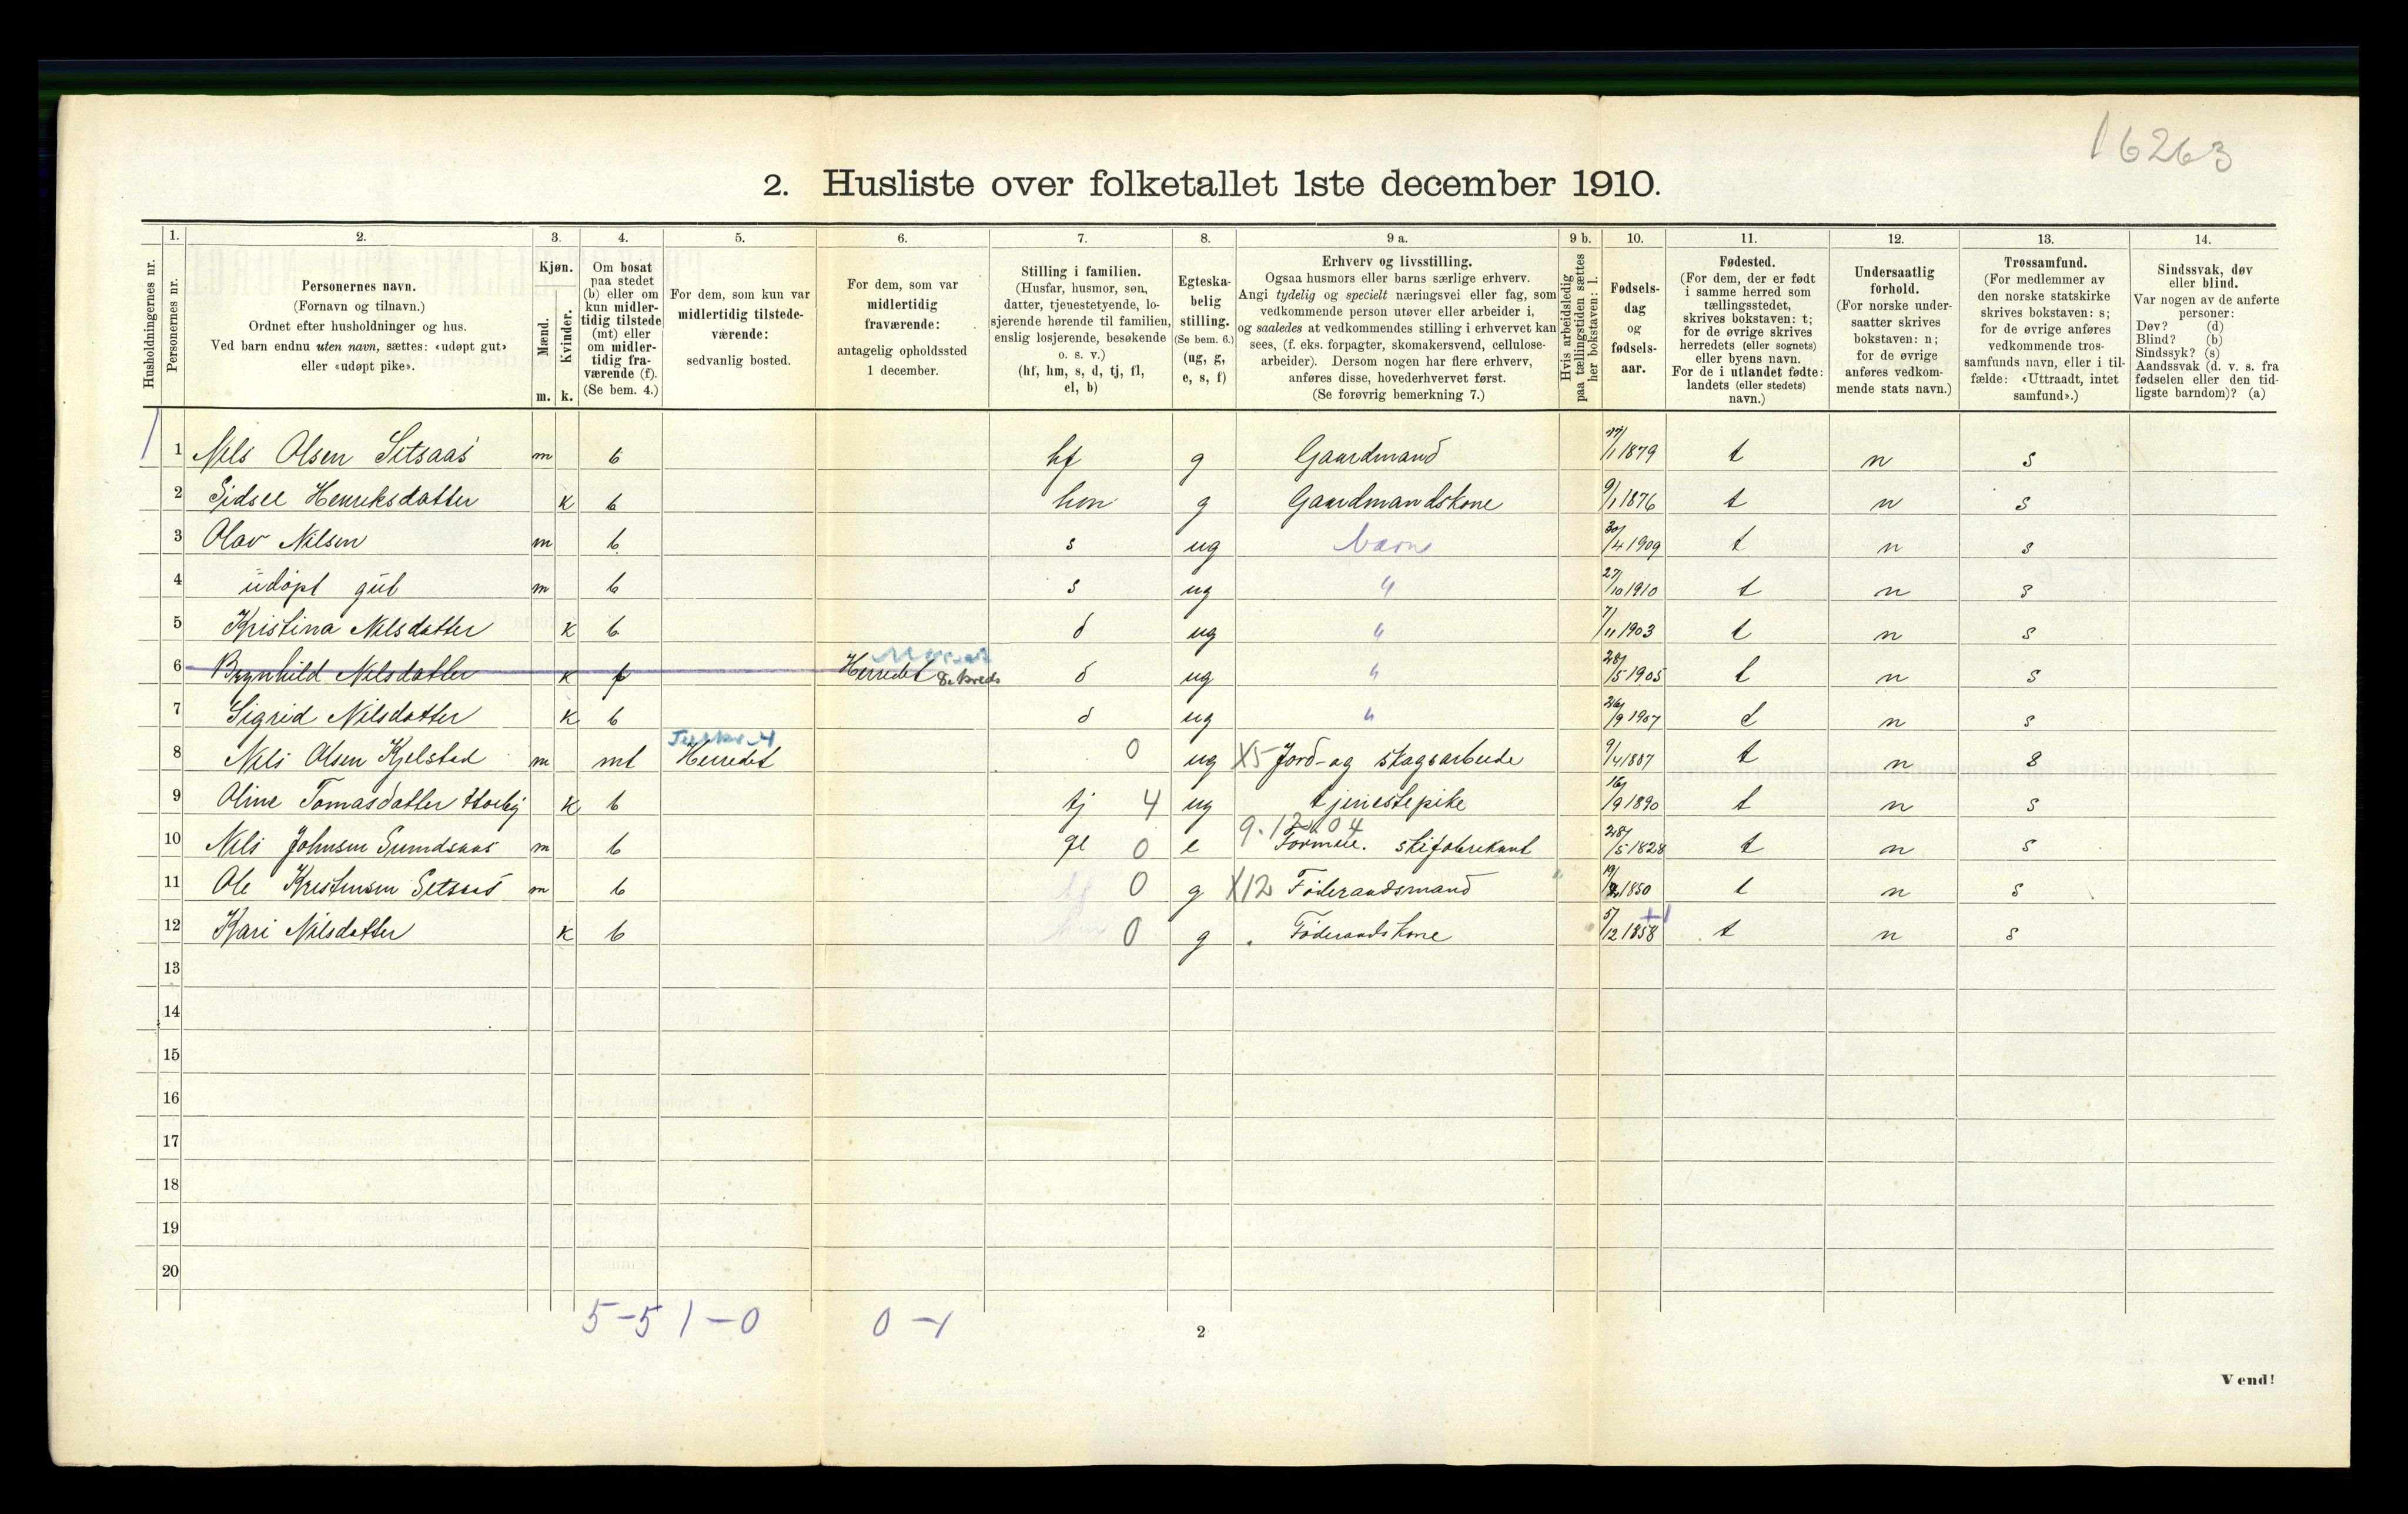 16263
2. Husliste over folketallet 1ste december 1910.
Husholdningernes nr.
1. Personernes nr.
2. Personernes navn. (Fornavn og tilnavn.) Ordnet efter husholdninger og hus. Ved barn endnu uten navn, sættes: «udøpt gut» eller «udøpt pike».
3. Kjøn. Mænd. m. Kvinder. k.
4. Om bosat paa stedet (b) eller om kun midler-tidig tilstede (mt) eller om midler-tidig fra-værende (f). (Se bem. 4.)
5. For dem, som kun var midlertidig tilstede-værende: sedvanlig bosted.
6. For dem, som var midlertidig fraværende: antagelig opholdssted 1 december.
7. Stilling i familien. (Husfar, husmor, søn, datter, tjenestetyende, lo-sjerende hørende til familien, enslig losjerende, besøkende o. s. v.) (hf, hm, s, d, tj, fl, el, b)
8. Egteska-belig stilling. (Se bem. 6.) (ug, g, e, s, f)
9 a. Erhverv og livsstilling. Ogsaa husmors eller barns særlige erhverv. Angi tydelig og specielt næringsvei eller fag, som vedkommende person utøver eller arbeider i, og saaledes at vedkommendes stilling i erhvervet kan sees, (f. eks. forpagter, skomakersvend, cellulose-arbeider). Dersom nogen har flere erhverv, anføres disse, hovederhvervet først. (Se forøvrig bemerkning 7.)
9 b. Hvis arbeidsledig paa tællingstiden sættes her bokstaven: l.
10. Fødsels-dag og fødsels-aar.
11. Fødested. (For dem, der er født i samme herred som tællingsstedet, skrives bokstaven: t; for de øvrige skrives herredets (eller sognets) eller byens navn. For de i utlandet fødte: landets (eller stedets) navn.)
12. Undersaatlig forhold. (For norske under-saatter skrives bokstaven: n; for de øvrige anføres vedkom-mende stats navn.)
13. Trossamfund. (For medlemmer av den norske statskirke skrives bokstaven: s; for de øvrige anføres vedkommende tros-samfunds navn, eller i til-fælde: «Uttraadt, intet samfund».)
14. Sindssvak, døv eller blind. Var nogen av de anførte personer: Døv? (d) Blind? (b) Sindssyk? (s) Aandssvak (d. v. s. fra fødselen eller den tid-ligste barndom)? (a)
1 1 Nils Olsen Setsaas m b hf g Gaardmand 17/1 1879 t n s
2 Sidsel Henriksdatter k b hm g Gaardmandskone 9/1 1876 t n s
3 Olav Nilsen m b s ug barn 30/4 1909 t n s
4 udøpt gut m b s ug " 27/10 1910 t n s
5 Kristina Nilsdatter k b d ug " 7/11 1903 t n s
6 Brynhild Nilsdatter k f Herredet 8. kreds d ug " 28/5 1905 t n s
7 Sigrid Nilsdatter k b d ug " 26/9 1907 t n s
8 Nils Olsen Kjelstad m mt Herredet 0 ug X5 Jord- og skogsarbeide 9/4 1887 t n s
9 Oline Tomasdatter k b tj 4 ug tjenestepike 16/9 1890 t n s
10 Nils Johnsen Sundsaas m b 0 e skifabrikant 28/5 1828 t n s
11 Ole Kristensen Setsaas m b 0 g X12 Føderaadsmand 1850 t n s
12 Kari Nilsdatter k b hm 0 g Føderaadskone 5/12 1858 t n s
13
14
15
16
17
18
19
20
5-5 1-0 0-1
2
Vend!